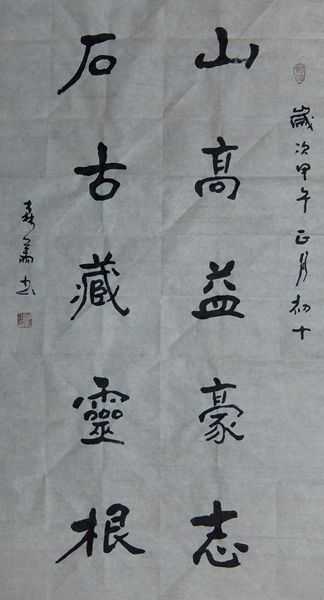 歲次甲午正月初十
山高益豪志
石古藏靈根